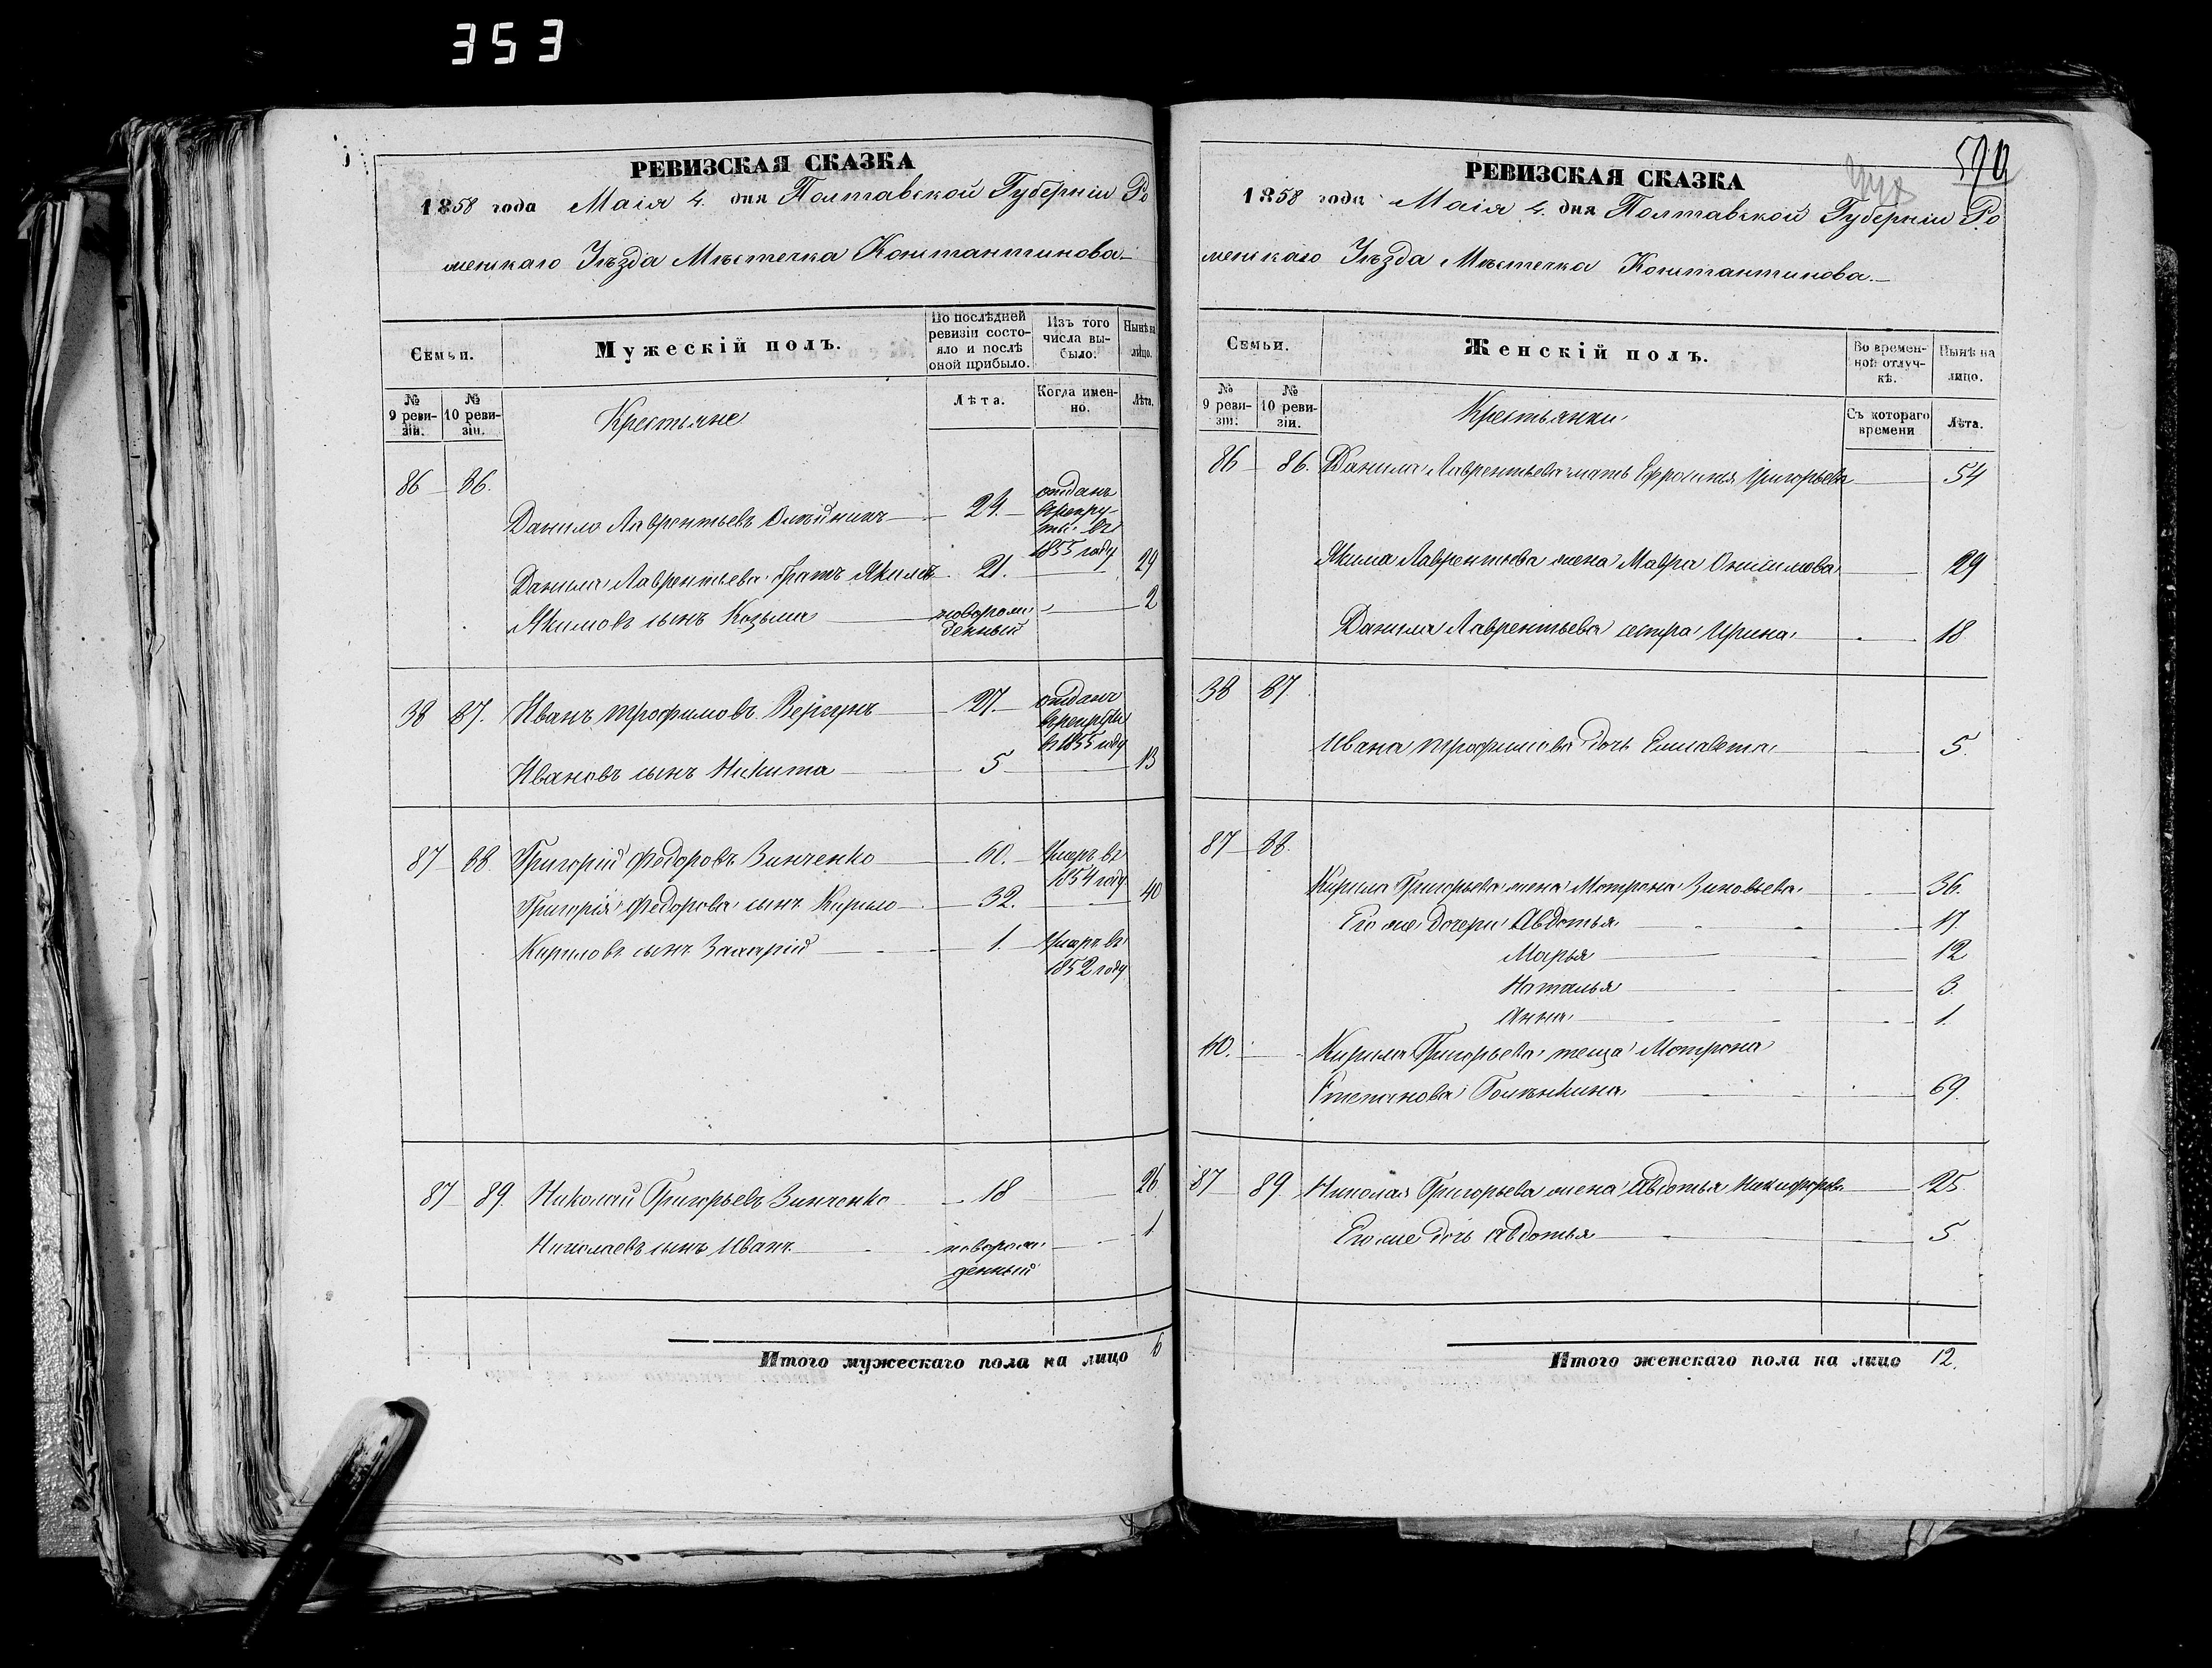 353
РЕВИЗСКАЯ СКАЗКА
1858 года Маія 4. дня Полтавской Губерніи Ро
менскаго Уѣзда Мѣстечка Константинова
Семьи.
Мужескій полъ.
По послѣдней ревизіи состояло и послѣ оной прибыло.
Изъ того числа выбыло.
Нынѣ на лицо.
№ 9 ревизіи.
№ 10 ревизіи.
Крестьяне
Лѣта.
Когда именно.
Лѣта.
86 86.
Данило Лаврентьевъ Олѣйникъ 24. отданъ в рекруты въ 1855 году
Данила Лаврентьева братъ Якимъ 21. 29
Якимовъ сынъ Козьма новорожденный 2
38 87. Иванъ Трофимовъ 27. отданъ в рекруты в 1855 году
Ивановъ сынъ Никита 5 13
87 88. Григорій Федоровъ Зинченко 60. Умеръ въ 1854 году
Григорія Федорова сынъ Кирило 32. 40
Кириловъ сынъ Захарій 1. Умеръ въ 1852 году
87 89. Николай Григорьевъ Зинченко 18 26
Николаевъ сынъ Иванъ новорожденный 1
Итого мужескаго пола на лицо 6
590
РЕВИЗСКАЯ СКАЗКА
1858 года Маія 4. дня Полтавской Губерніи Ро
менскаго Уѣзда Мѣстечка Константинова.
Семьи.
Женскій полъ.
Во временной отлучкѣ.
Нынѣ на лицо.
№ 9 ревизіи.
№ 10 ревизіи.
Крестьянки
Съ котораго времени
Лѣта.
86 86. Данила Лаврентьева мать Ефросинья Григорьева 54
Якима Лаврентьева жена Мавра Онисимова 29
Данила Лаврентьева сестра Ирина 18
38 87
Ивана Трофимова дочь Елисавета 5.
87 88.
Кирила Григорьева жена Мотрона Зиновьева 36.
Его же дочери Авдотья 17.
Марья 12
Наталья 3.
Анна 1.
110. Кирила Григорьева теща Мотрона
Степанова 69.
87 89. Николая Григорьева жена Авдотья Никифорова 25.
Его же дочь Авдотья 5
Итого женскаго пола на лицо 12.